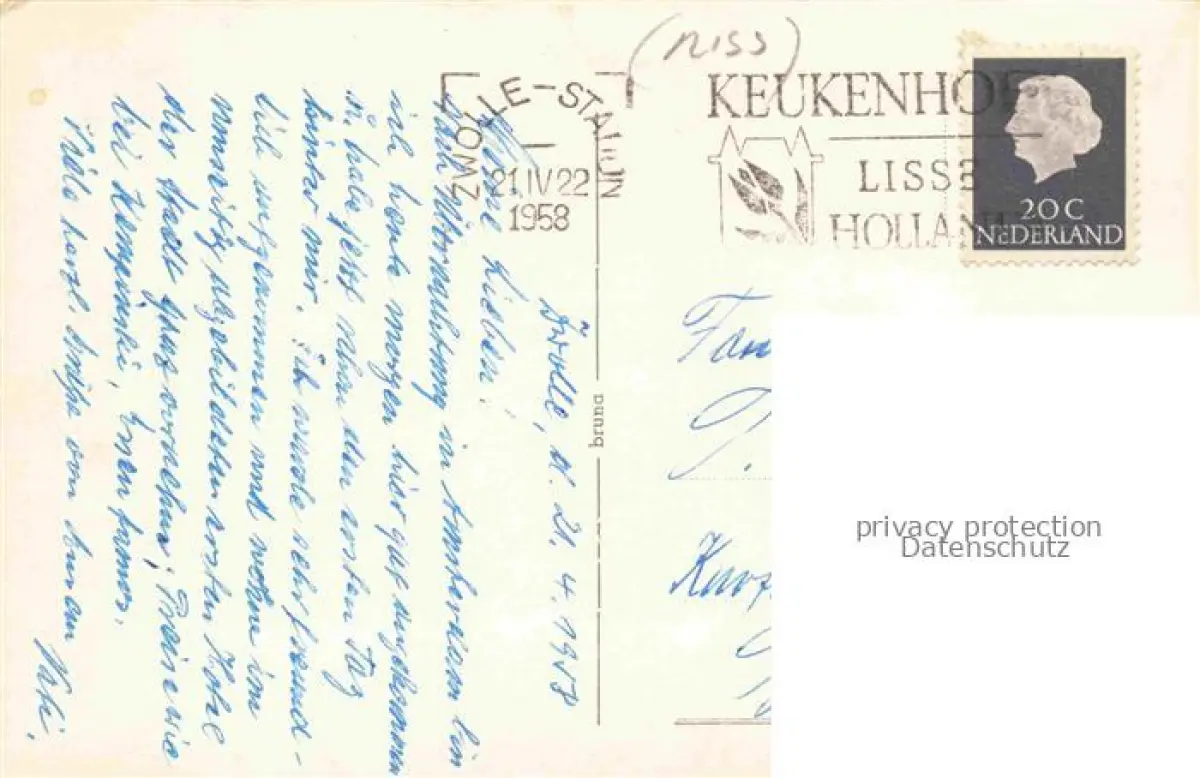 (RISS)
ZWOLLE-STATION
21.IV 22
1958
KEUKENHOF
LISSE
HOLLAND
20 C
NEDERLAND
Zwolle, d. 21. 4. 1958
Meine Lieben!
Nach Übernachtung in Amsterdam bin
ich heute morgen hier gut angekommen
u. habe jetzt schon den ersten Tag
hinter mir. Ich wurde sehr freund-
lich aufgenommen und wohne im
vornehm ersten Hotel
der Stadt Preise wie
bei Kempinski, Essen famos.
Viele herzl. Grüße von Eurem
Vati.
bruna
Fam
privacy protection
Datenschutz